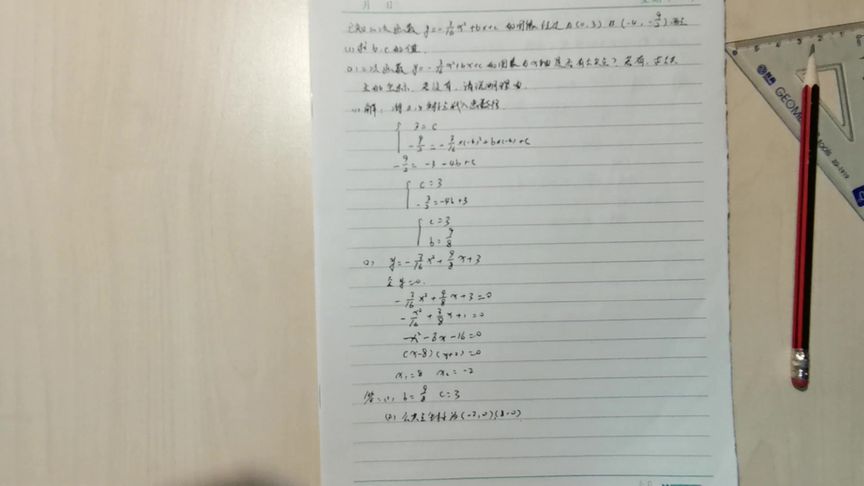 月 日
已知二次函数 y=-3/16x²+bx+c 的图像经过 A(0,3) B(-4,-9/2) 两点
(1) 求 b, c 的值
(2) 二次函数 y=-3/16x²+bx+c 的图象与x轴是否有公共点？若有，求公共
点的坐标，若没有，请说明理由.
(1) 解：将A,B
3=c
-9/2=-3/16×(-4)²+b×(-4)+c
-9/2=-3-4b+c
c=3
-3/2=-4b+3
c=3
b=9/8
(2) y=-3/16x²+9/8x+3
令 y=0.
-3/16x²+9/8x+3=0
-x²/16+3/8x+1=0
x²-6x-16=0
(x-8)(x+2)=0
x₁=8 x₂=-2
答：(1) b=9/8 c=3
(2) 公共点坐标为(-2,0)(8,0)
GEOM